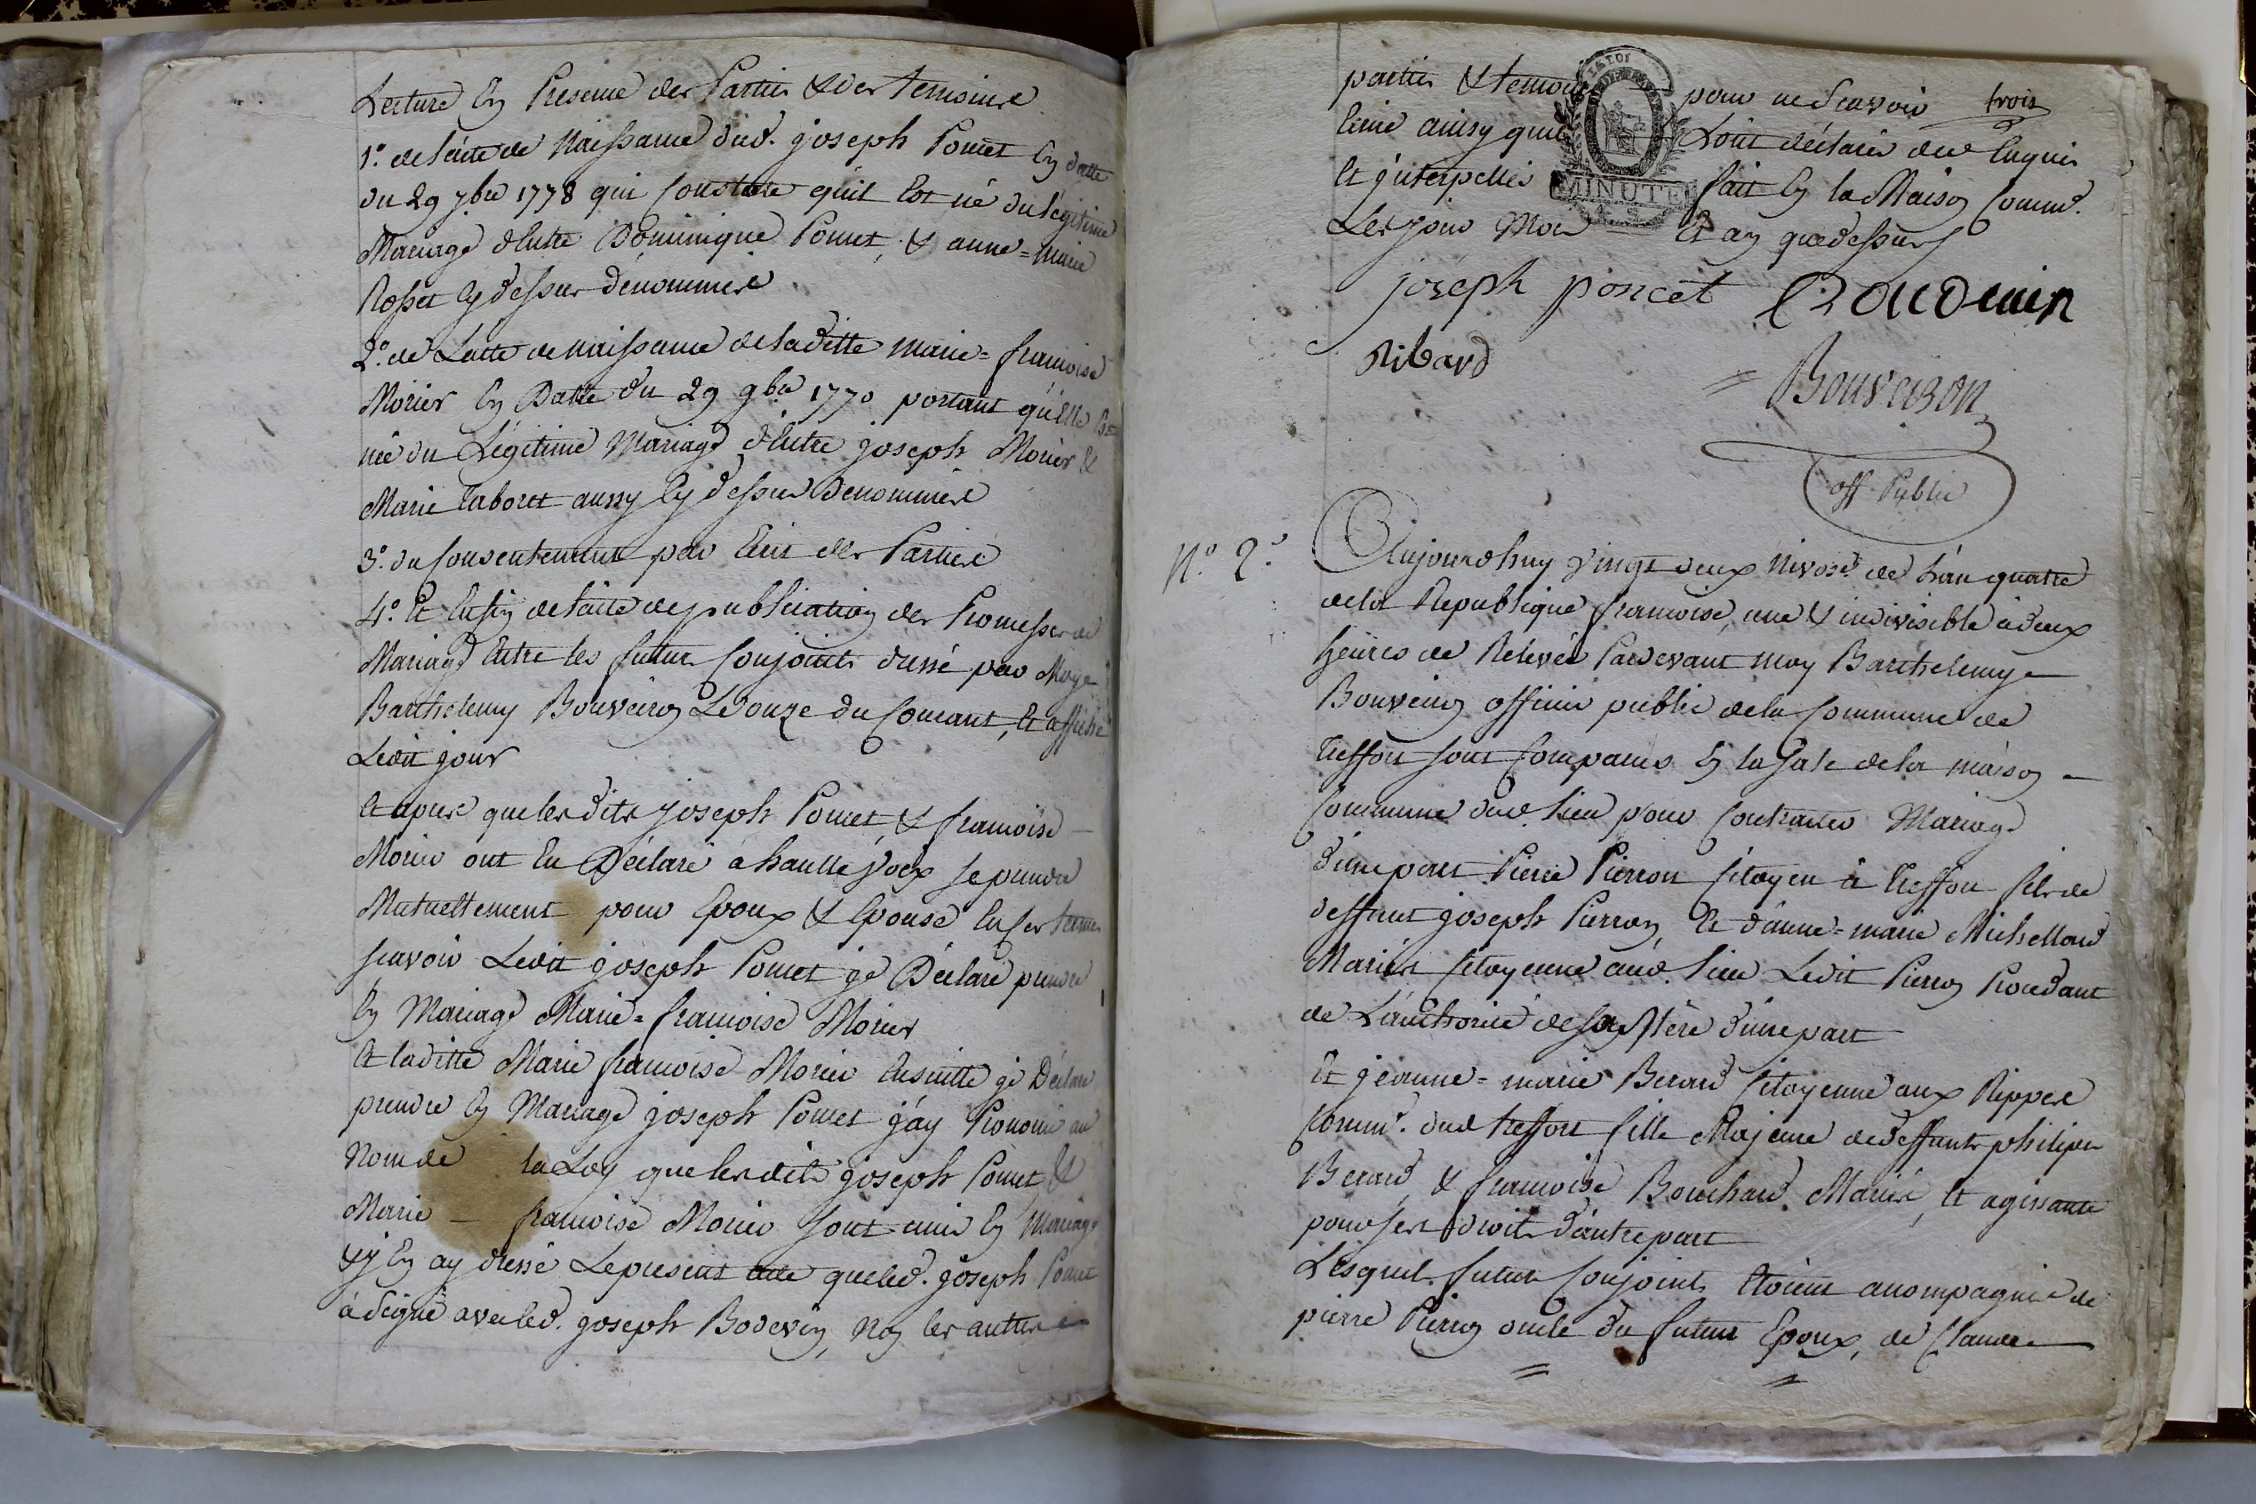 Lecture en Presence des Parties & des temoins
1º. de lacte de Naissance dud. joseph Poncet en datte
du 29 7bre 1778 qui Constate quil Est né du legitime
Mariage d'Entre Dominique Poncet, & anne=marie
Rosset cy dessus dénommés
2º. de Lacte de naissance de laditte marie=francoise
Morier en Datte du 29 9bre 1770 portant qu'elle Est
née du Légitime Mariage d'Entre joseph Morier &
Marie taboret aussy cy dessus Denommés
3º. du Consentement par Ecrit des Parties
4º. Et Enfin de lacte de publication des Promesses de
Mariage Entre les futurs Conjoints dressé par Moy
Barthelemy Bouveiron Le onze du Courant, Et affiché
Ledit jour
Et apres que lesdits joseph Poncet & francoise
Morier ont Eu Déclaré a haulte voix se prendre
Mutuellement pour Epoux & Epouse En ses termes
scavoir Ledit joseph Poncet je Déclare prendre
En Mariage Marie=francoise Morier
Et laditte Marie francoise Morier Ensuitte je Déclare
prendre En Mariage joseph Poncet j'ay Prononcé au
Nom de la Loy que lesdits joseph Poncet &
Marie - francoise Morier sont unis En Mariage
& j'En ay dressé Le present acte que led. joseph Poncet
à signé avec led. joseph Bodevin, Non les auttres
parties & temoins pour ne scavoir trois
Ecrire ainsy quils L'ont déclaré de ce Enquis
Et jnterpellés fait En la Maison Comm.e
Les jour Mois Et an que dessus
LA LOI
MINUTE
joseph poncet Baudouin
Ribard
Bouveiron
off. Public
Nº. 2º.
Aujourdhuy vingt deux Nivose de l'an quatre
de la Republique francoise, une & indivisible à deux
heures de Relevée Pardevant moy Barthelemy
Bouveiron officier public de la Commune de
treffort sont Comparus En la Sale de la maison
Commune dud. lieu pour Contracter Mariage
d'une part Pierre Pierron Citoyen à treffort fils de
deffunt joseph Pierron, Et d'anne=marie Michellard
Mariés Citoyenne aud. lieu Ledit Pierron Procedant
de L'authorité de sa Mère d'une part
Et jeanne=marie Berard Citoyenne aux Rippes
Comm.e dud treffort fille Majeure de deffunts philipe
Berard, & francoise Bouchard Mariés, Et agissante
pour ses droits d'autre part
Lesquels futurs Conjoints Etoient accompagnés de
pierre Pierron oncle du futur Epoux, de Claude